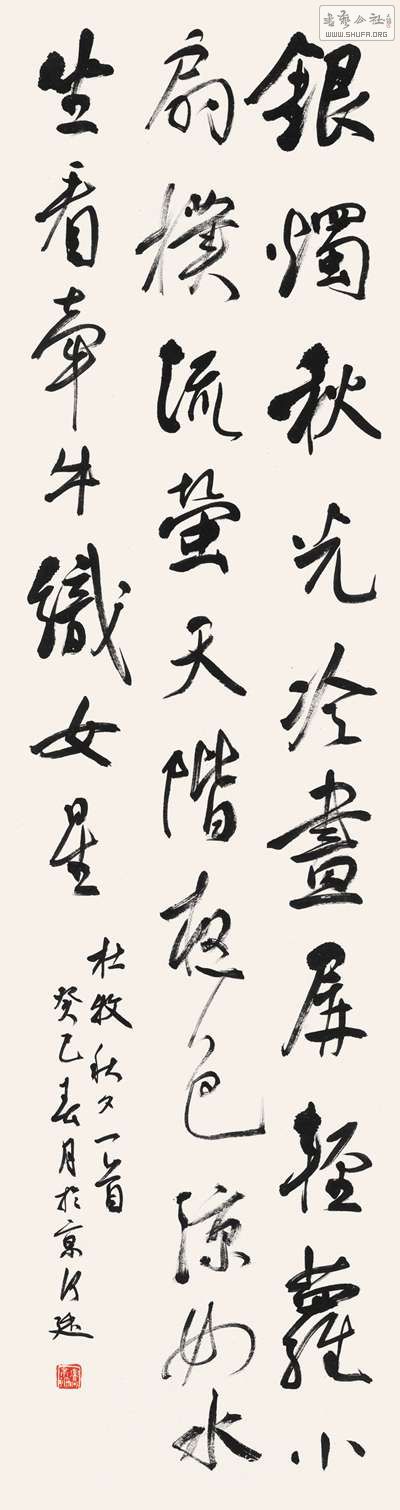 銀燭秋光冷畫屏輕羅小
扇撲流螢天階夜色涼如水
坐看牽牛織女星
杜牧秋夕一首
癸巳春月於京
書藝公社
WWW.SHUFA.ORG